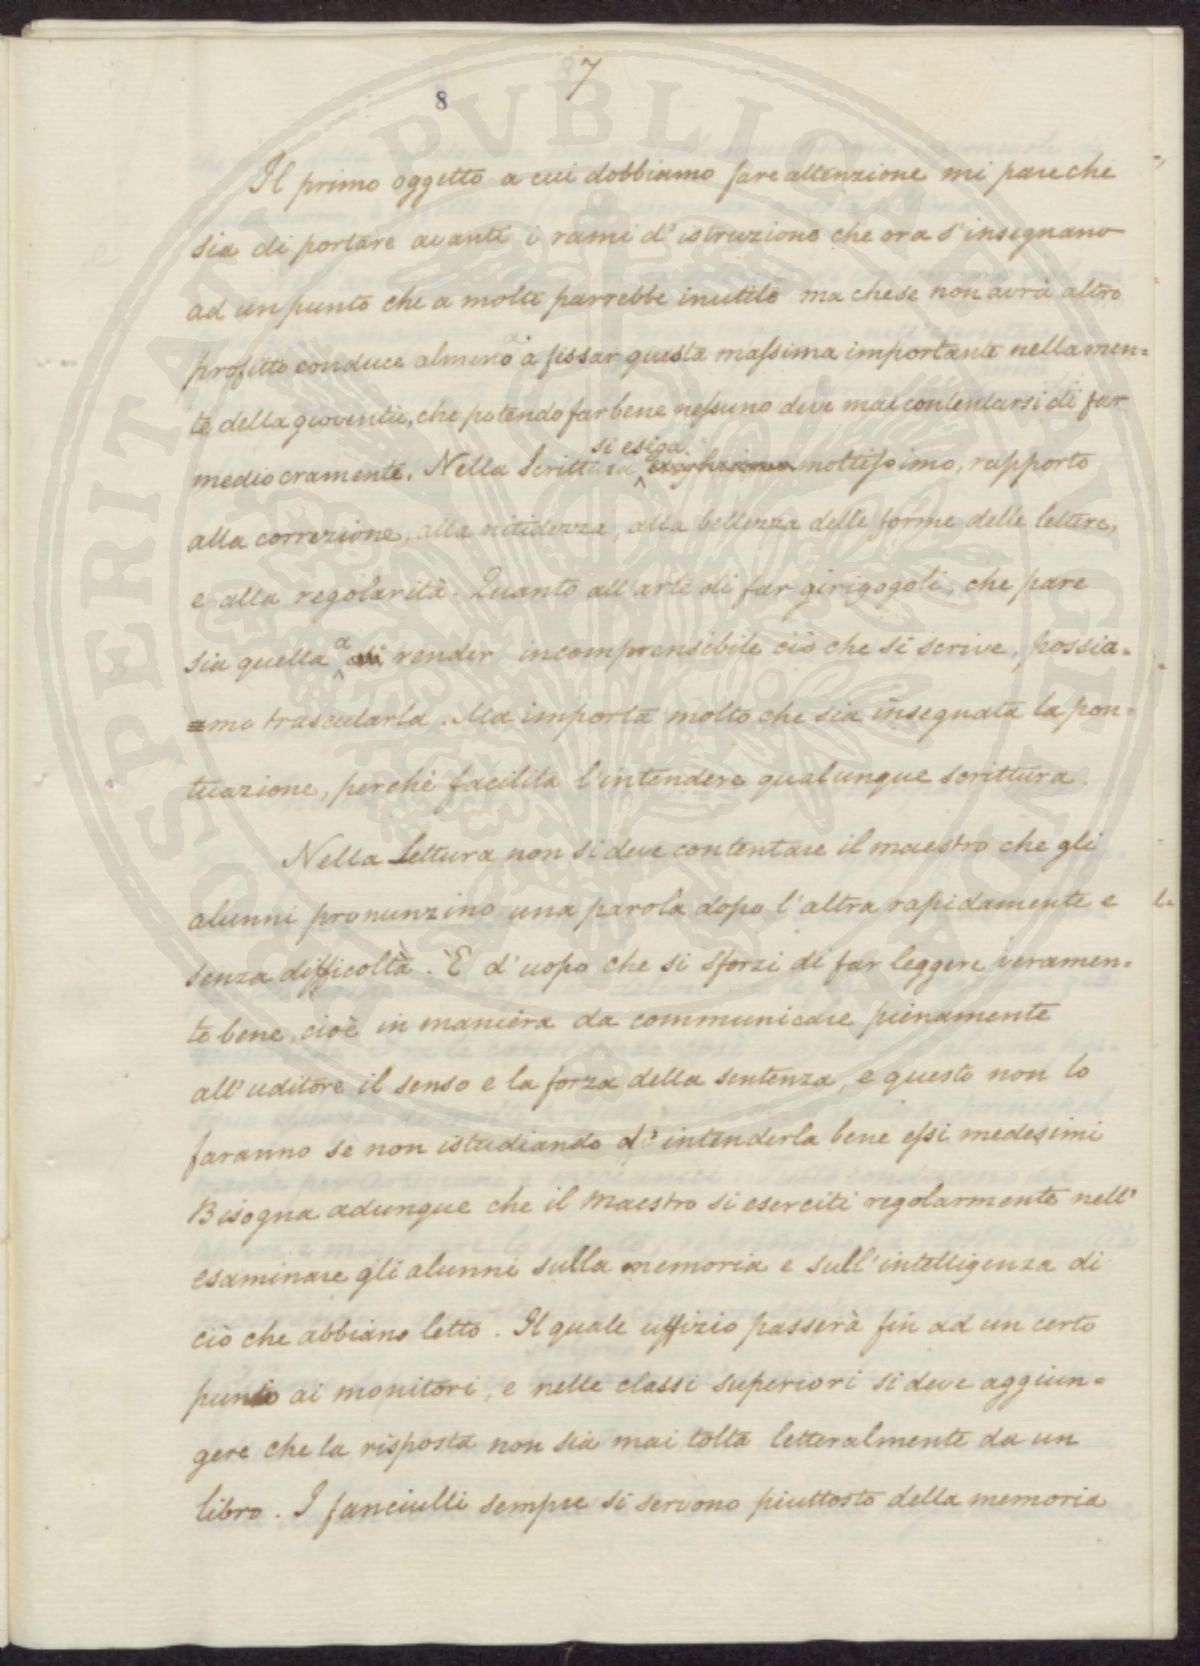 7
8
PROSPERITATI PVBLICAE AVGENDAE
Il primo oggetto a cui dobbiamo fare attenzione mi pare che
sia di portare avanti i rami d'istruzione che ora s'insegnano
ad un punto che a molti parrebbe inutile ma che se non avrà altro
profitto conduce almeno a fissar questa massima importante nella men=
te della gioventù, che potendo far bene nessuno deve mai contentarsi di far
si esiga
mediocramente. Nella Scrittura moltissimo, rapporto
alla correzione, alla nitidezza, alla bellezza delle forme delle lettere,
e alla regolarità. Quanto all'arte di far girigogoli, che pare
a
sia quella di render incomprensibile ciò che si scrive, possia=
=mo trascurarla. Ma importa molto che sia insegnata la pon=
tuazione, perchè facilita l'intendere qualunque scrittura.
Nella Lettura non si deve contentare il maestro che gli
alunni pronunzino una parola dopo l'altra rapidamente e
senza difficoltà. È d'uopo che si sforzi di far leggere veramen=
te bene, cioè in maniera da communicare pienamente
all'uditore il senso e la forza della sentenza, e questo non lo
faranno se non istudiando d'intenderla bene essi medesimi
Bisogna adunque che il Maestro si eserciti regolarmente nell'
esaminare gli alunni sulla memoria e sull'intelligenza di
ciò che abbiano letto. Il quale uffizio passerà fin ad un certo
punto ai monitori, e nelle classi superiori si deve aggiun=
gere che la risposta non sia mai tolta letteralmente da un
libro. I fanciulli sempre si servono piuttosto della memoria